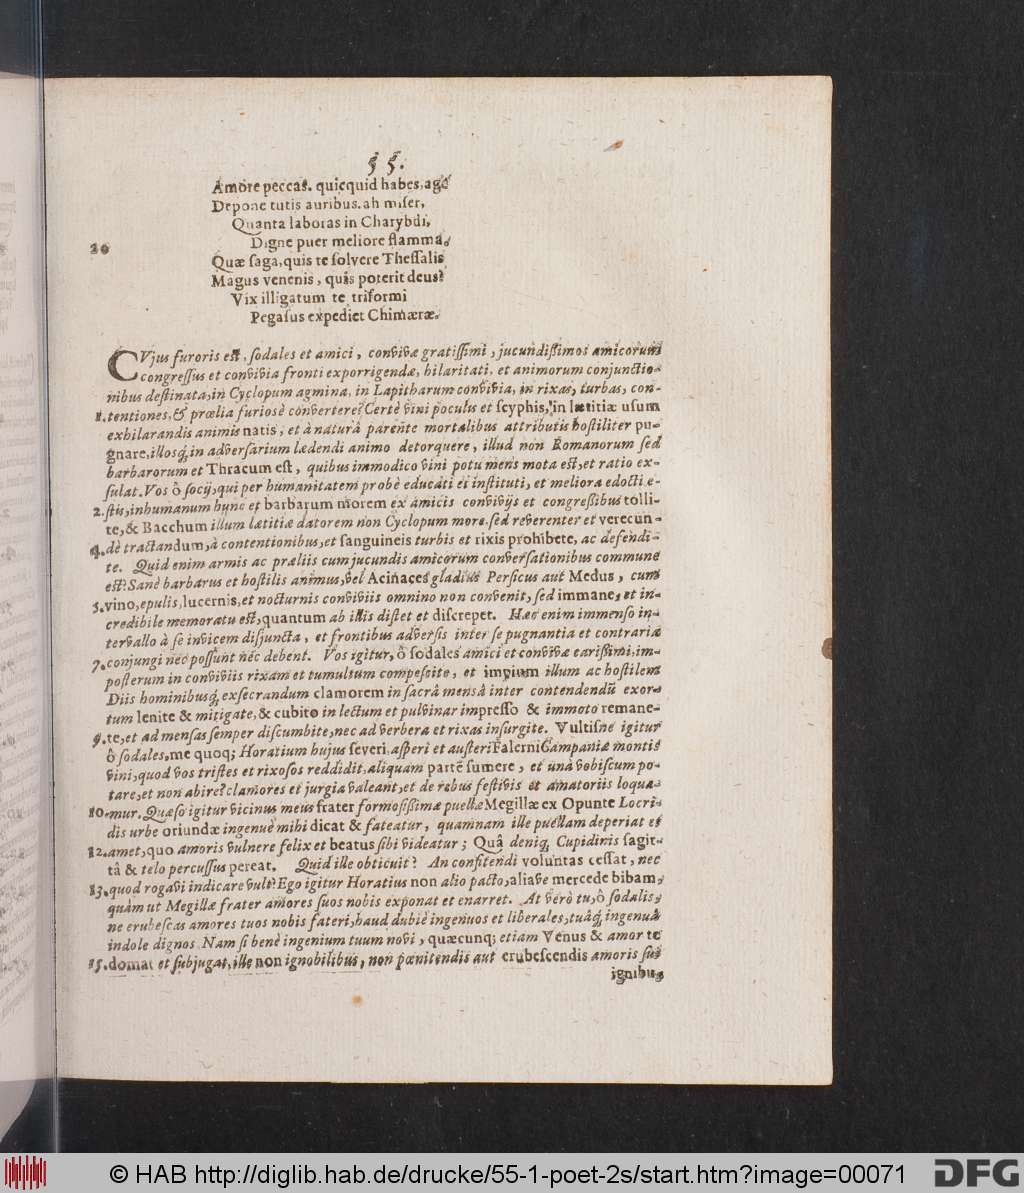 § 5.
Amore peccas. quicquid habes, age
Depone tutis auribus. ah miser,
Quanta laboras in Charybdi,
Digne puer meliore flamma.
20
Quæ saga, quis te solvere Thessalis
Magus venenis, quis poterit deus?
Vix illigatum te triformi
Pegasus expediet Chimæræ.
CVjus furoris est, sodales et amici, convivæ gratissimi, jucundissimos amicorum
congressus et convivia fronti exporrigendæ, hilaritati, et animorum conjunctio-
nibus destinata, in Cyclopum agmina, in Lapitharum convivia, in rixas, turbas, con-
1. tentiones, & prælia furiosè convertere? Certè vini poculis et scyphis, in lætitiæ usum
exhilarandis animis natis, et à naturâ parente mortalibus attributis hostiliter pu-
gnare, illosq; in adversarium lædendi animo detorquere, illud non Romanorum sed
barbarorum et Thracum est, quibus immodico vini potu mens mota est, et ratio ex-
sulat. Vos ô socij, qui per humanitatem probè educati et instituti, et meliora edocti e-
2. stis, inhumanum hunc et barbarum morem ex amicis convivijs et congressibus tolli-
te, & Bacchum illum lætitiæ datorem non Cyclopum more, sed reverenter et verecun-
4. dè tractandum, à contentionibus, et sanguineis turbis et rixis prohibete, ac defendi-
te. Quid enim armis ac præliis cum jucundis amicorum conversationibus commune
est? Sanè barbarus et hostilis animus, vel Acinaces gladius Persicus aut Medus, cum
5. vino, epulis, lucernis, et nocturnis conviviis omnino non convenit, sed immane, et in-
credibile memoratu est, quantum ab illis distet et discrepet. Hæc enim immenso in-
tervallo à se invicem disjuncta, et frontibus adversis inter se pugnantia et contraria
7. conjungi nec possunt nec debent. Vos igitur, ô sodales amici et convivæ carissimi, im-
posterum in conviviis rixam et tumultum compescite, et impium illum ac hostilem
Diis hominibusq; exsecrandum clamorem in sacrâ mensâ inter contendendũ exor-
tum lenite & mitigate, & cubito in lectum et pulvinar impresso & immoto remane-
9. te, et ad mensas semper discumbite, nec ad verbera et rixas insurgite. Vultisne igitur
ô sodales, me quoq; Horatium hujus severi, asperi et austeri Falerni Campaniæ montis
vini, quod vos tristes et rixosos reddidit, aliquam partẽ sumere, et unà vobiscum po-
tare, et non abire? clamores et jurgia valeant, et de rebus festivis et amatoriis loqua-
10. mur. Quæso igitur vicinus meus frater formosissimæ puellæ Megillæ ex Opunte Locri-
dis urbe oriundæ ingenuè mihi dicat & fateatur, quamnam ille puellam deperiat et
12. amet, quo amoris vulnere felix et beatus sibi videatur; Quâ deniq; Cupidinis sagit-
tâ & telo percussus pereat. Quid ille obticuit? An confitendi voluntas cessat, nec
13. quod rogavi indicare vult? Ego igitur Horatius non alio pacto, aliave mercede bibam,
quàm ut Megillæ frater amores suos nobis exponat et enarret. At verò tu, ô sodalis,
ne erubescas amores tuos nobis fateri, haud dubiè ingenuos et liberales, tuâq; ingenuâ
indole dignos. Nam si benè ingenium tuum novi, quæcunq; etiam Venus & amor te
15. domat et subjugat, ille non ignobilibus, non pœnitendis aut erubescendis amoris sui
ignibus
© HAB http://diglib.hab.de/drucke/55-1-poet-2s/start.htm?image=00071
DFG